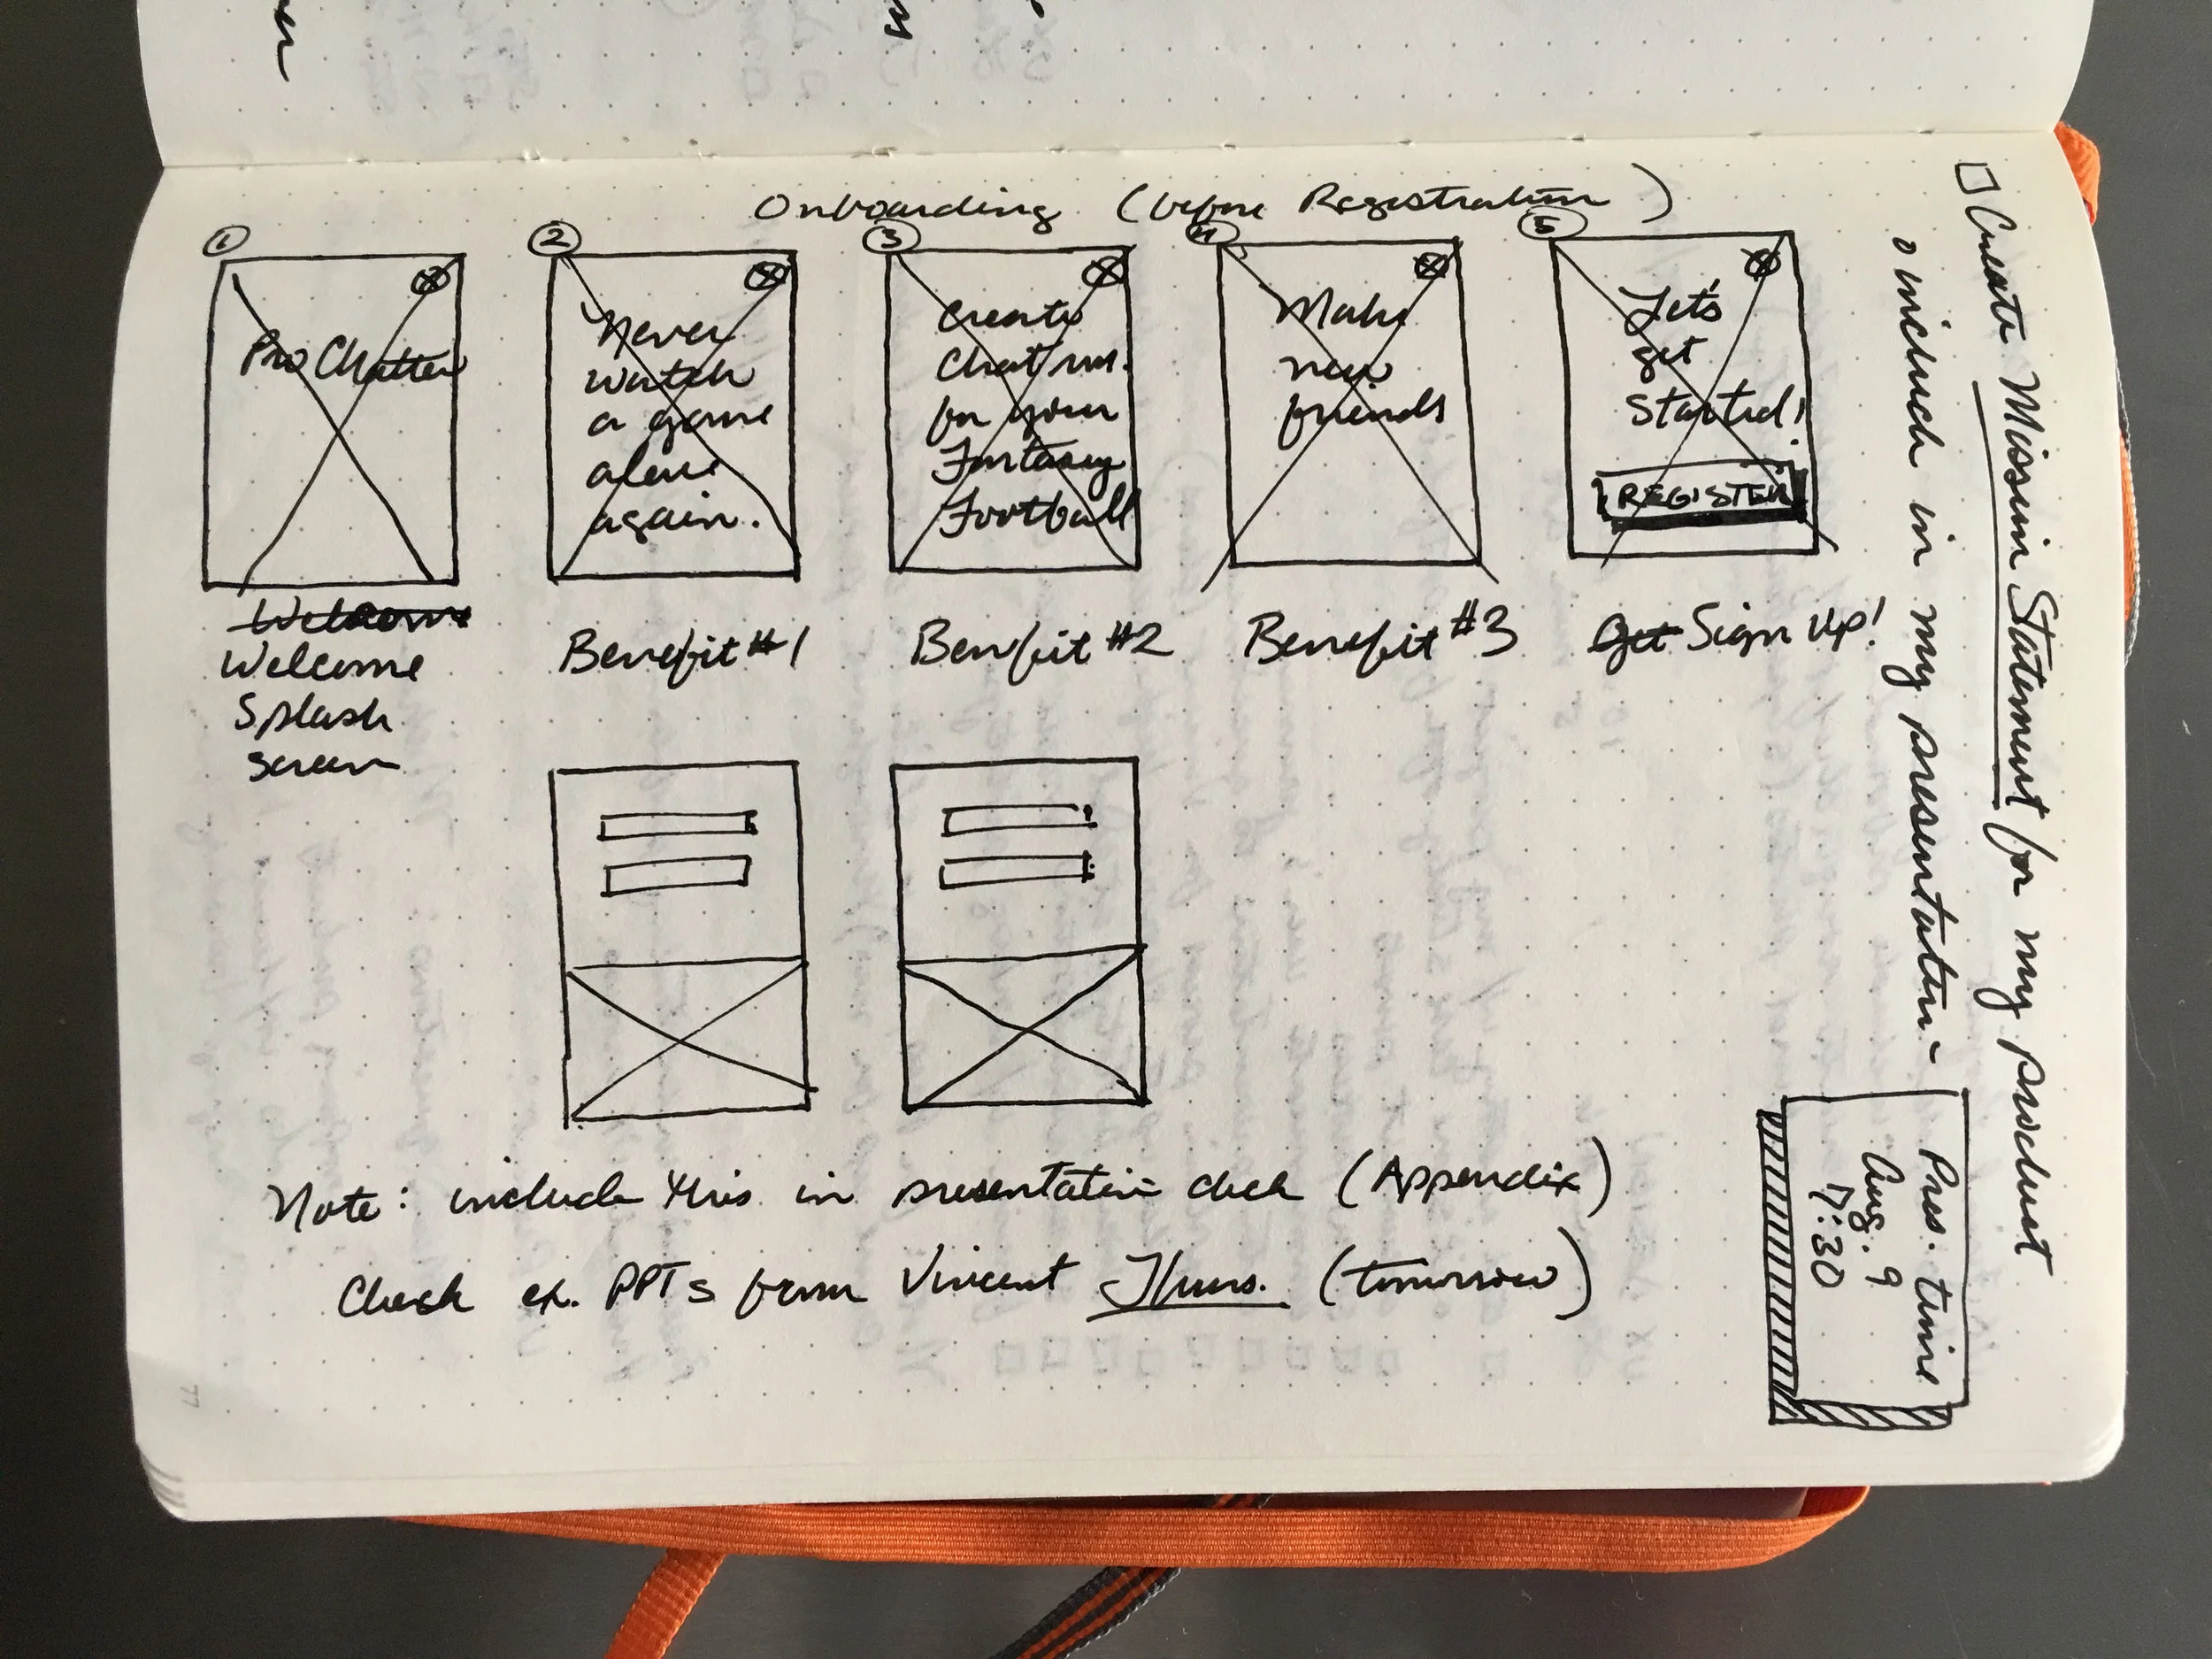 Onboarding (before Registration)
①
②
③
④
⑤
Pro Chatter
Never
watch
a game
alone
again.
Create
Chat rms.
for your
Fantasy
Football
Make
new
friends
Let's
get
started!
REGISTER
Welcome
Welcome
Splash
screen
Benefit #1
Benefit #2
Benefit #3
Get Sign Up!
Note: include this in presentation deck (Appendix)
Check ex. PPTs from Vincent Thurs. (tomorrow)
Create Mission Statement for my product
○ include in my presentation
Pres. time
Aug. 9
17:30
77